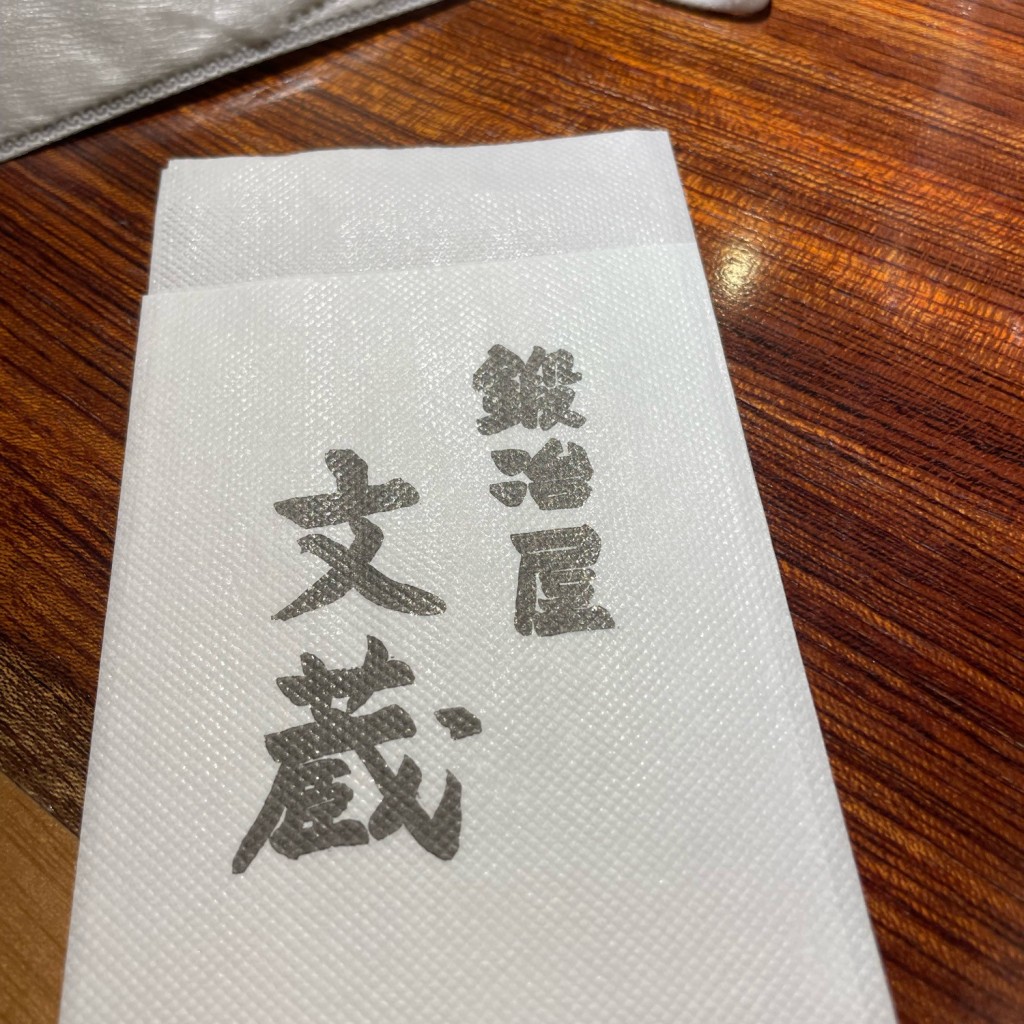 鍛冶屋
文蔵